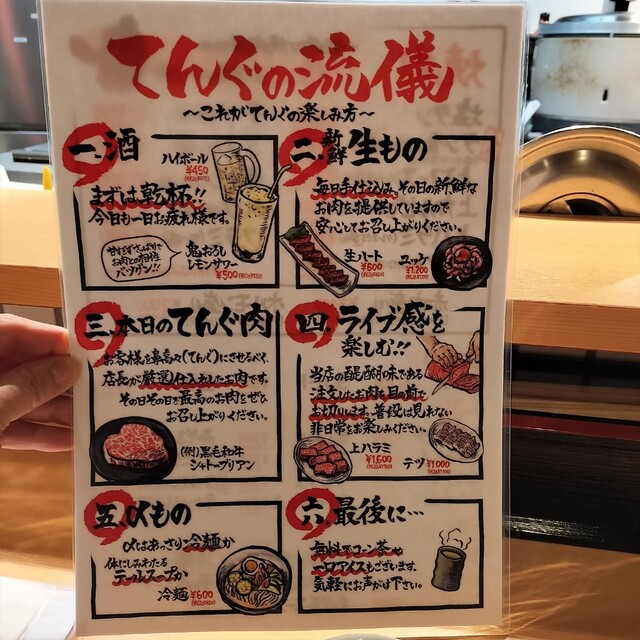 てんぐの流儀
～これがてんぐの楽しみ方～
一.酒
ハイボール
¥450
まずは乾杯!!
今日も一日お疲れ様です。
甘すぎずさっぱりで
お肉との相性
バツグン!!
鬼おろし
レモンサワー
¥500
二.新鮮生もの
毎日手仕込み、その日の新鮮な
お肉を提供していますので
安心してお召し上がりください。
生ハート
¥600
ユッケ
¥1,200
三.本日のてんぐ肉
お客様を鼻高々(てんぐ)にさせるべく、
店長が厳選仕入れしたお肉です。
その日その日を最高のお肉をぜひ
お召し上がりください。
(例)黒毛和牛
シャトーブリアン
四.ライブ感を
楽しむ!!
当店の醍醐味である
注文したお肉を目の前で
お切りします。普段は見れない
非日常をお楽しみください。
上ハラミ
¥1,600
テツ
¥1,000
五.〆もの
〆はあっさり冷麺か
体にしみわたる
テールスープか
冷麺 ¥600
六.最後に…
無料でコーン茶や
一口アイスもございます。
気軽にお声がけ下さい。